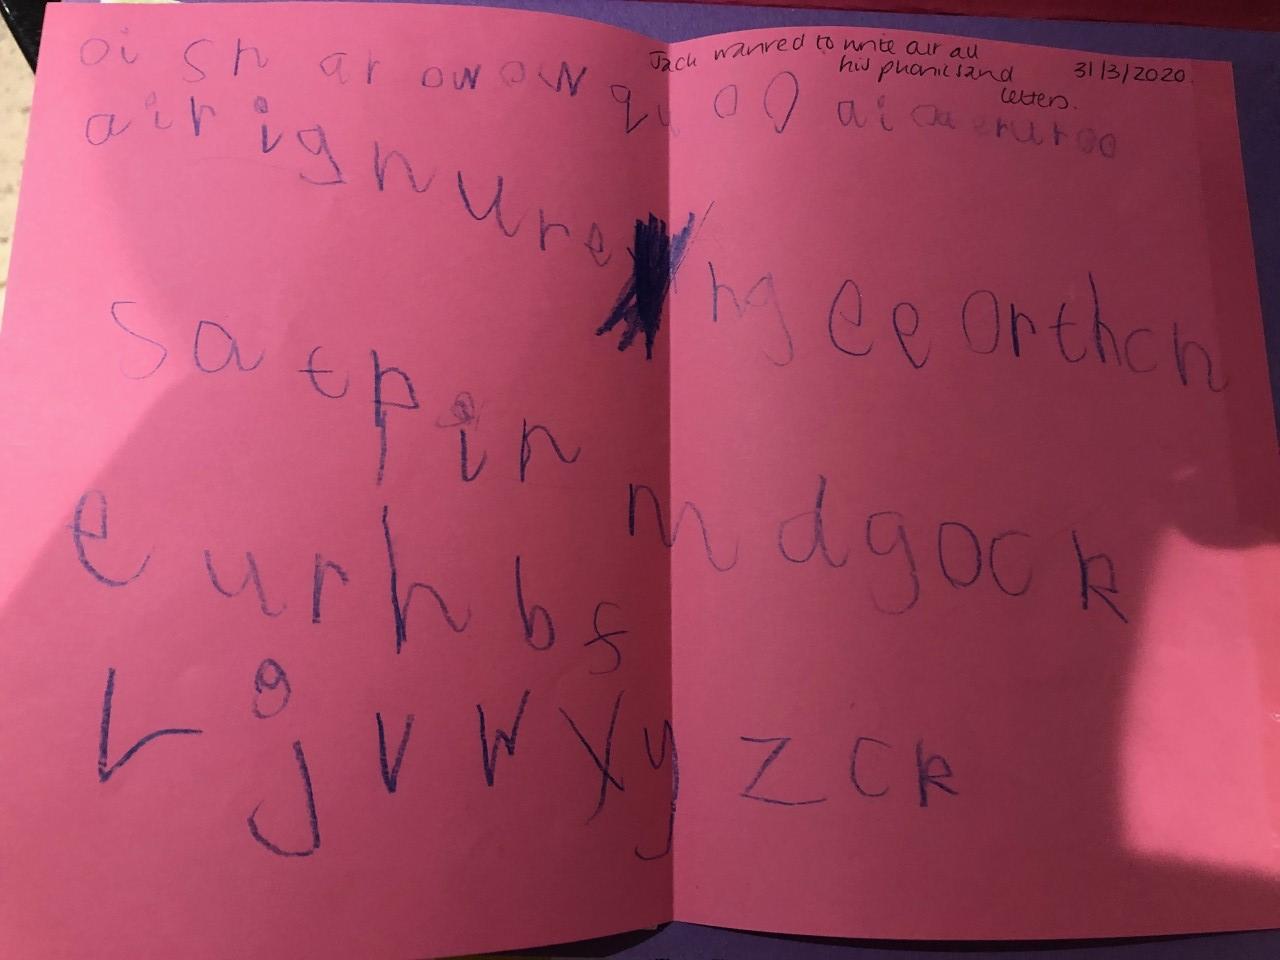 Jack wanred to write aur all
his phonics and
letters.
31/3/2020
oi sh ar ow ow qu oo ai oa er ur oo
air igh ure ng ee or th ch
s a t p i n
m d g o c k
e u r h b f
L j v w x y z ck